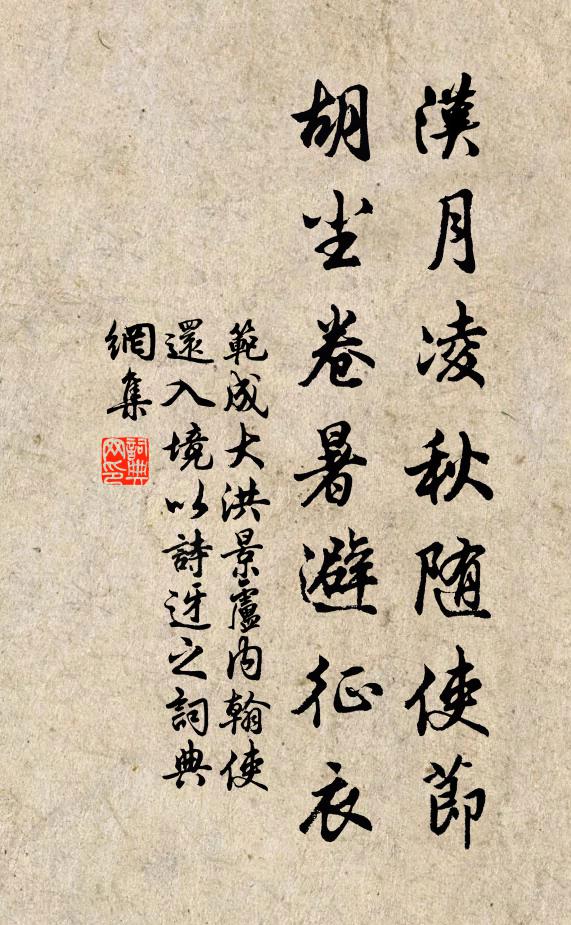 漢月凌秋随使節
胡尘卷暑避征衣
範成大洪景廬内翰使
還入境以詩迓之詞典
網集
詞典
网印